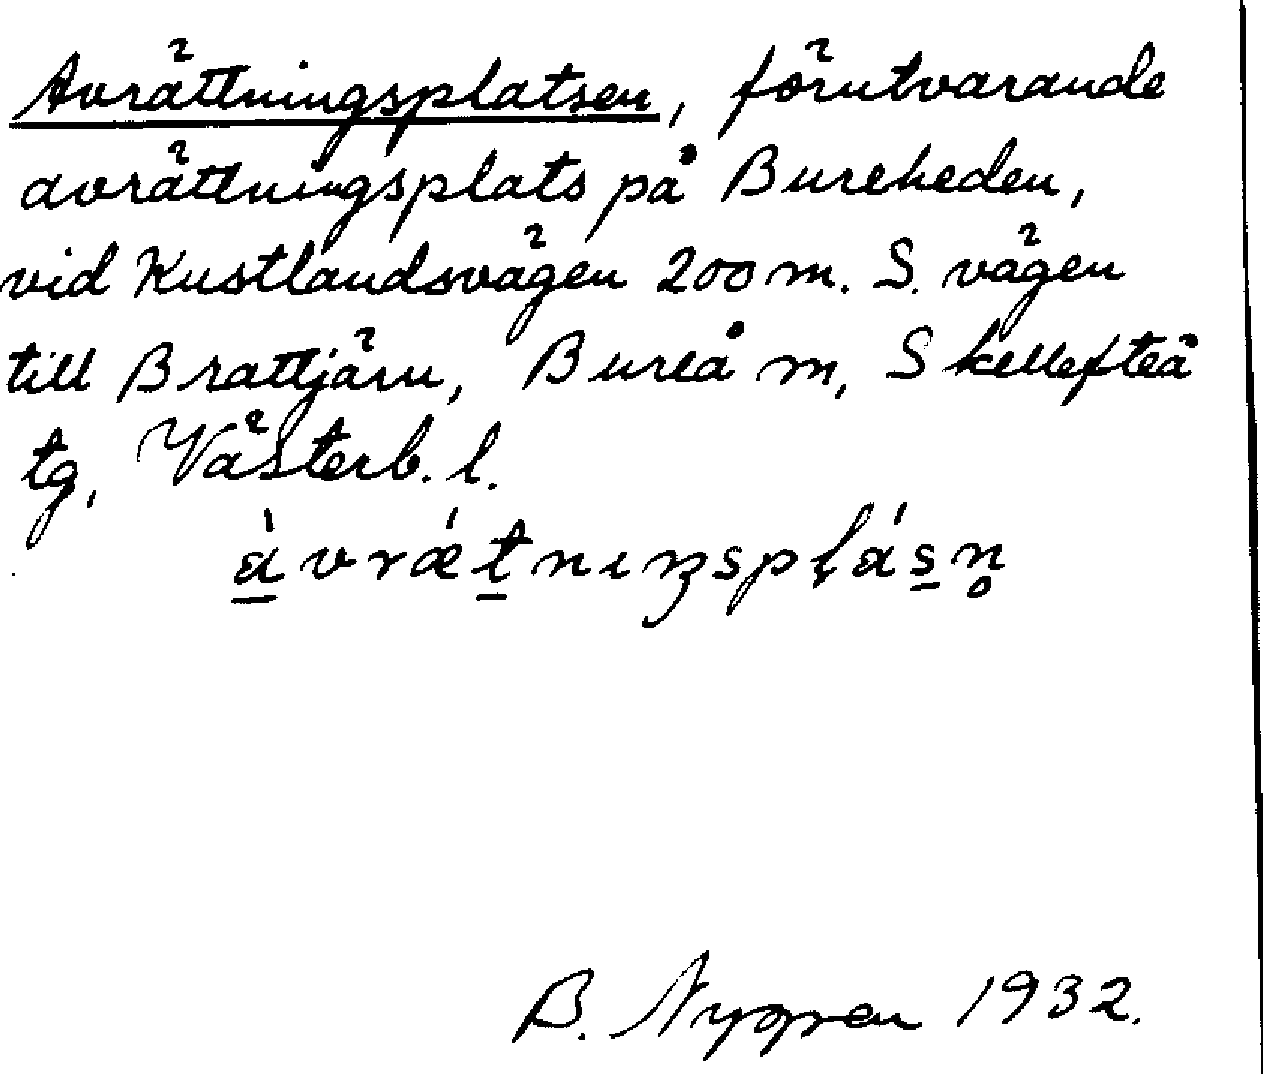 Avrättningsplatsen, förutvarande
avrättningsplats på Bureheden,
vid Kustlandsvägen 200 m. S. vägen
till Brattjärn, Bureå m, Skellefteå
tg, Västerb. l.
B. Nygren 1932.